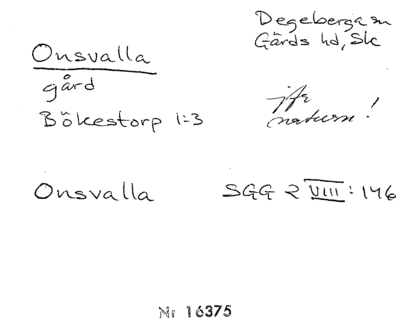 Degeberga sn
Gärds hd, Sk
Onsvalla
gård
Bökestorp 1:3
jfr
naturn!
Onsvalla SGG 2 VIII: 146
Nr 16375